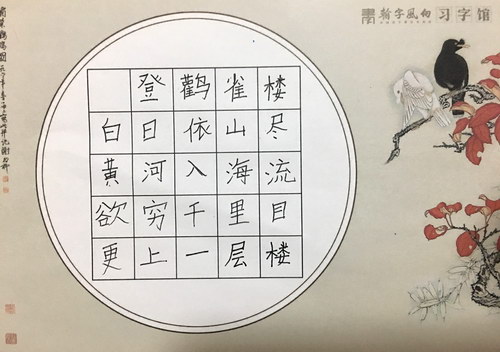 翰字风向习字馆
登鹳雀楼
白日依山尽
黄河入海流
欲穷千里目
更上一层楼